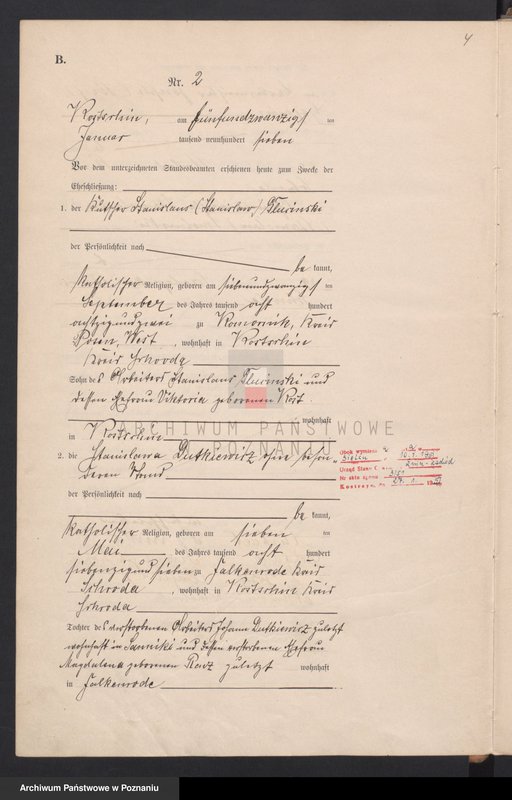 4
B.
Nr. 2
Kostschin, am fünfundzwanzigsten
Januar tausend neunhundert sieben
Vor dem unterzeichneten Standesbeamten erschienen heute zum Zwecke der
Eheschließung:
1. der Kutscher Stanislaus (Stanisław)
der Persönlichkeit nach
be kannt,
katholischer Religion, geboren am siebenundzwanzigsten
September des Jahres tausend acht hundert
achtzigundzwei zu Komornik, Kreis
Posen, West, wohnhaft in Kostschin
Kreis Schroda
Sohn des Arbeiters Stanislaus und
dessen Ehefrau Viktoria geborenen
wohnhaft
in Kostschin
ARCHIWUM PAŃSTWOWE
POZNANIU
2. die Stanislawa Dutkiewicz ohne beson-
deren Stand
der Persönlichkeit nach
be kannt,
katholischer Religion, geboren am sieben ten
Mai des Jahres tausend acht hundert
siebenzigundsieben zu Falkenrode Kreis
Schroda, wohnhaft in Kostschin Kreis
Schroda
Tochter des verstorbenen Arbeiters Johann Dutkiewicz zuletzt
wohnhaft in und dessen verstorbenen Ehefrau
Magdalena geborenen zuletzt wohnhaft
in Falkenrode
Urząd Stanu
Nr aktu zgonu
Kostrzyn
Archiwum Państwowe w Poznaniu